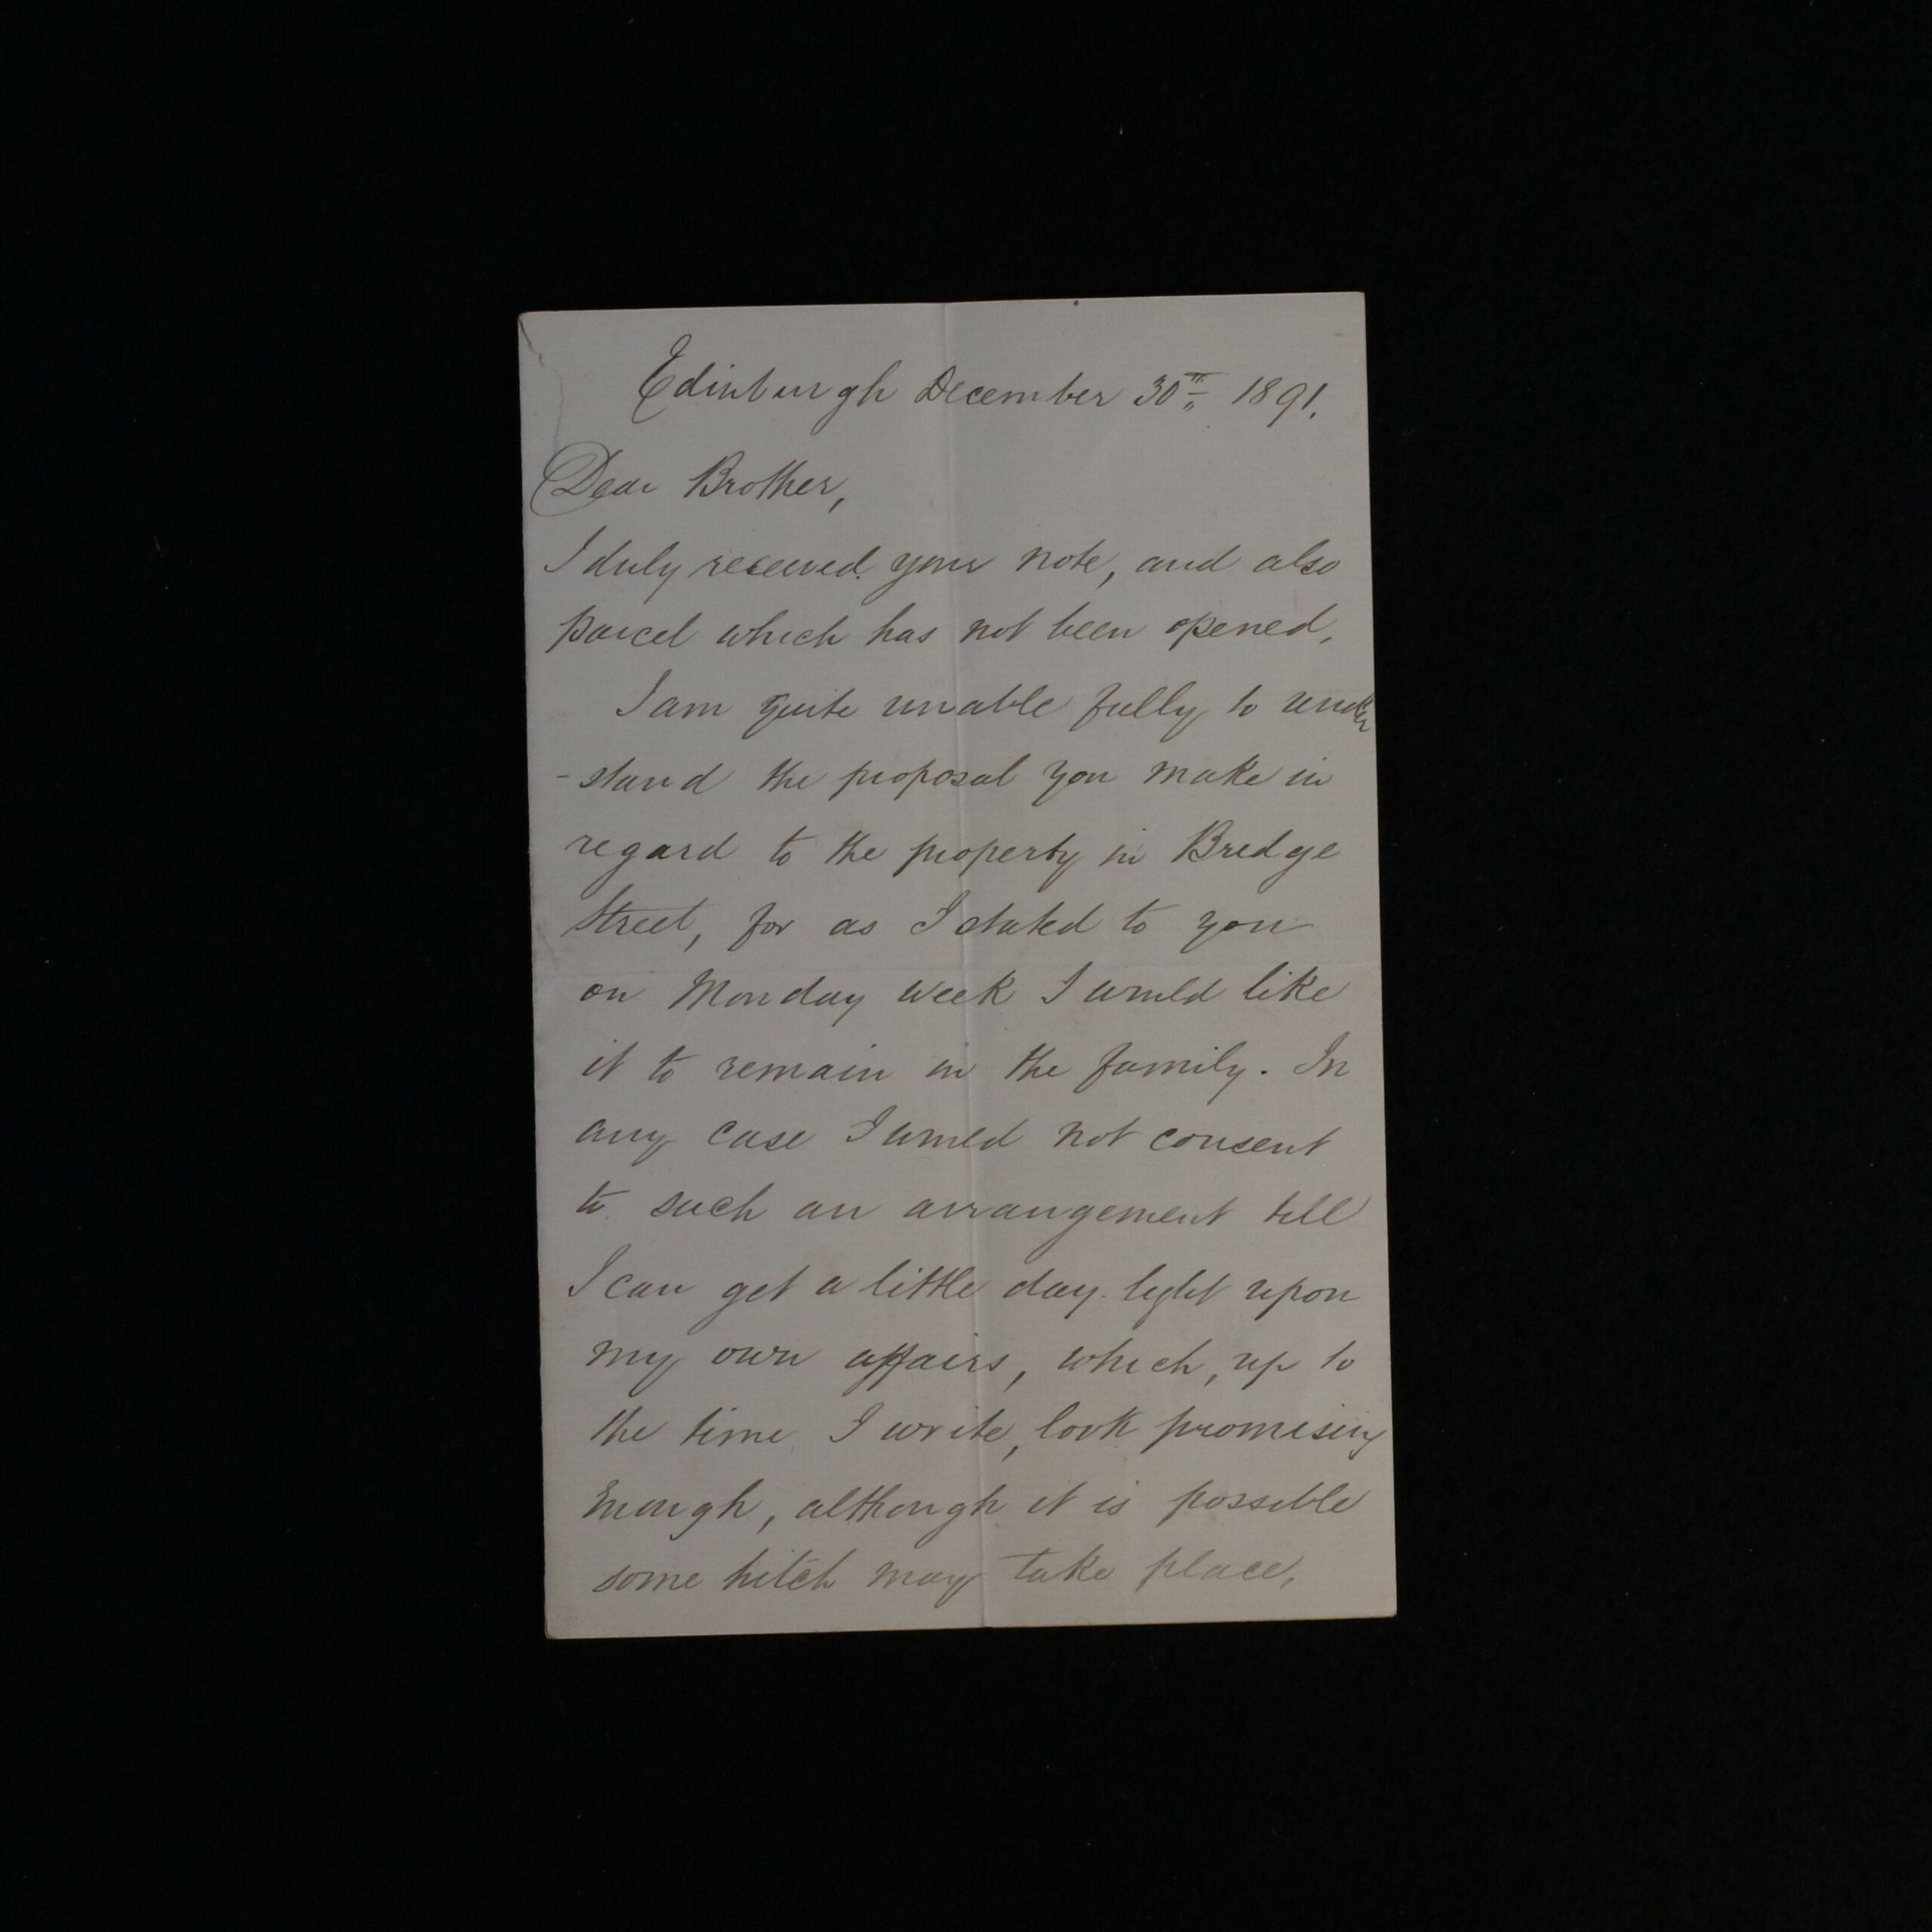 Edinburgh December 30th 1891.
Dear Brother,
I duly received your note, and also
parcel which has not been opened,
I am quite unable fully to under
-stand the proposal you make in
regard to the property in Bridge
Street, for as I stated to you
on Monday week I would like
it to remain in the family. In
any case I would not consent
to such an arrangement till
I can get a little day-light upon
my own affairs, which, up to
the time I write, look promising
Enough, although it is possible
some hitch may take place,